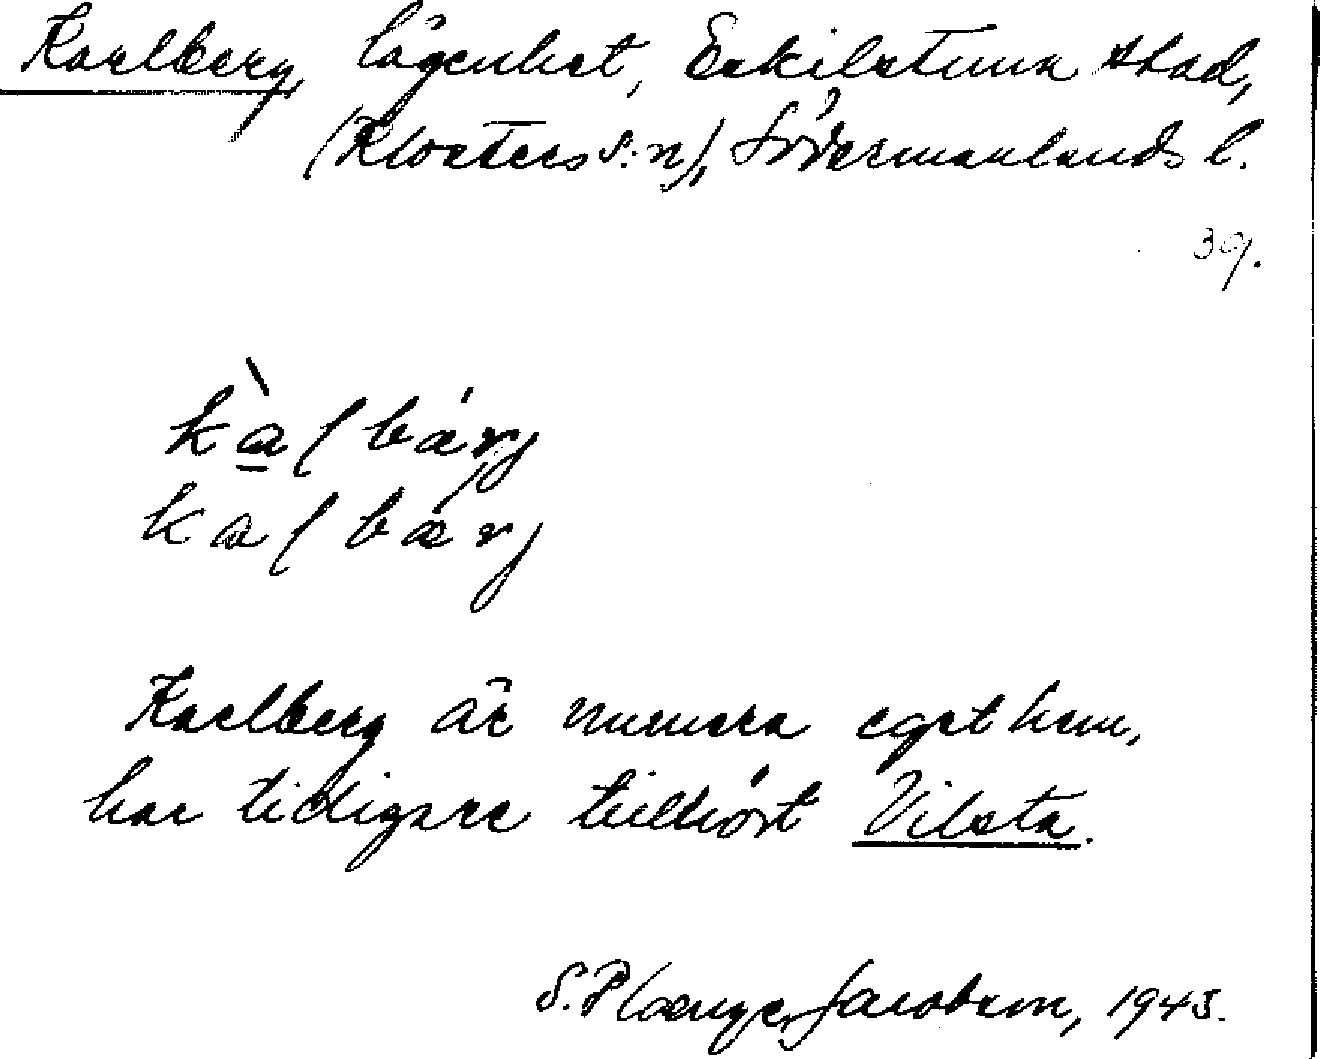 Karlberg, lägenhet, Eskilstuna stad,
(Klosters s:n), Södermanlands l.
39.
kàlbárj
kalbærj
Karlberg är numera eget hem,
har tidigare tillhört Vilsta.
S. Plænge Jacobson, 1945.